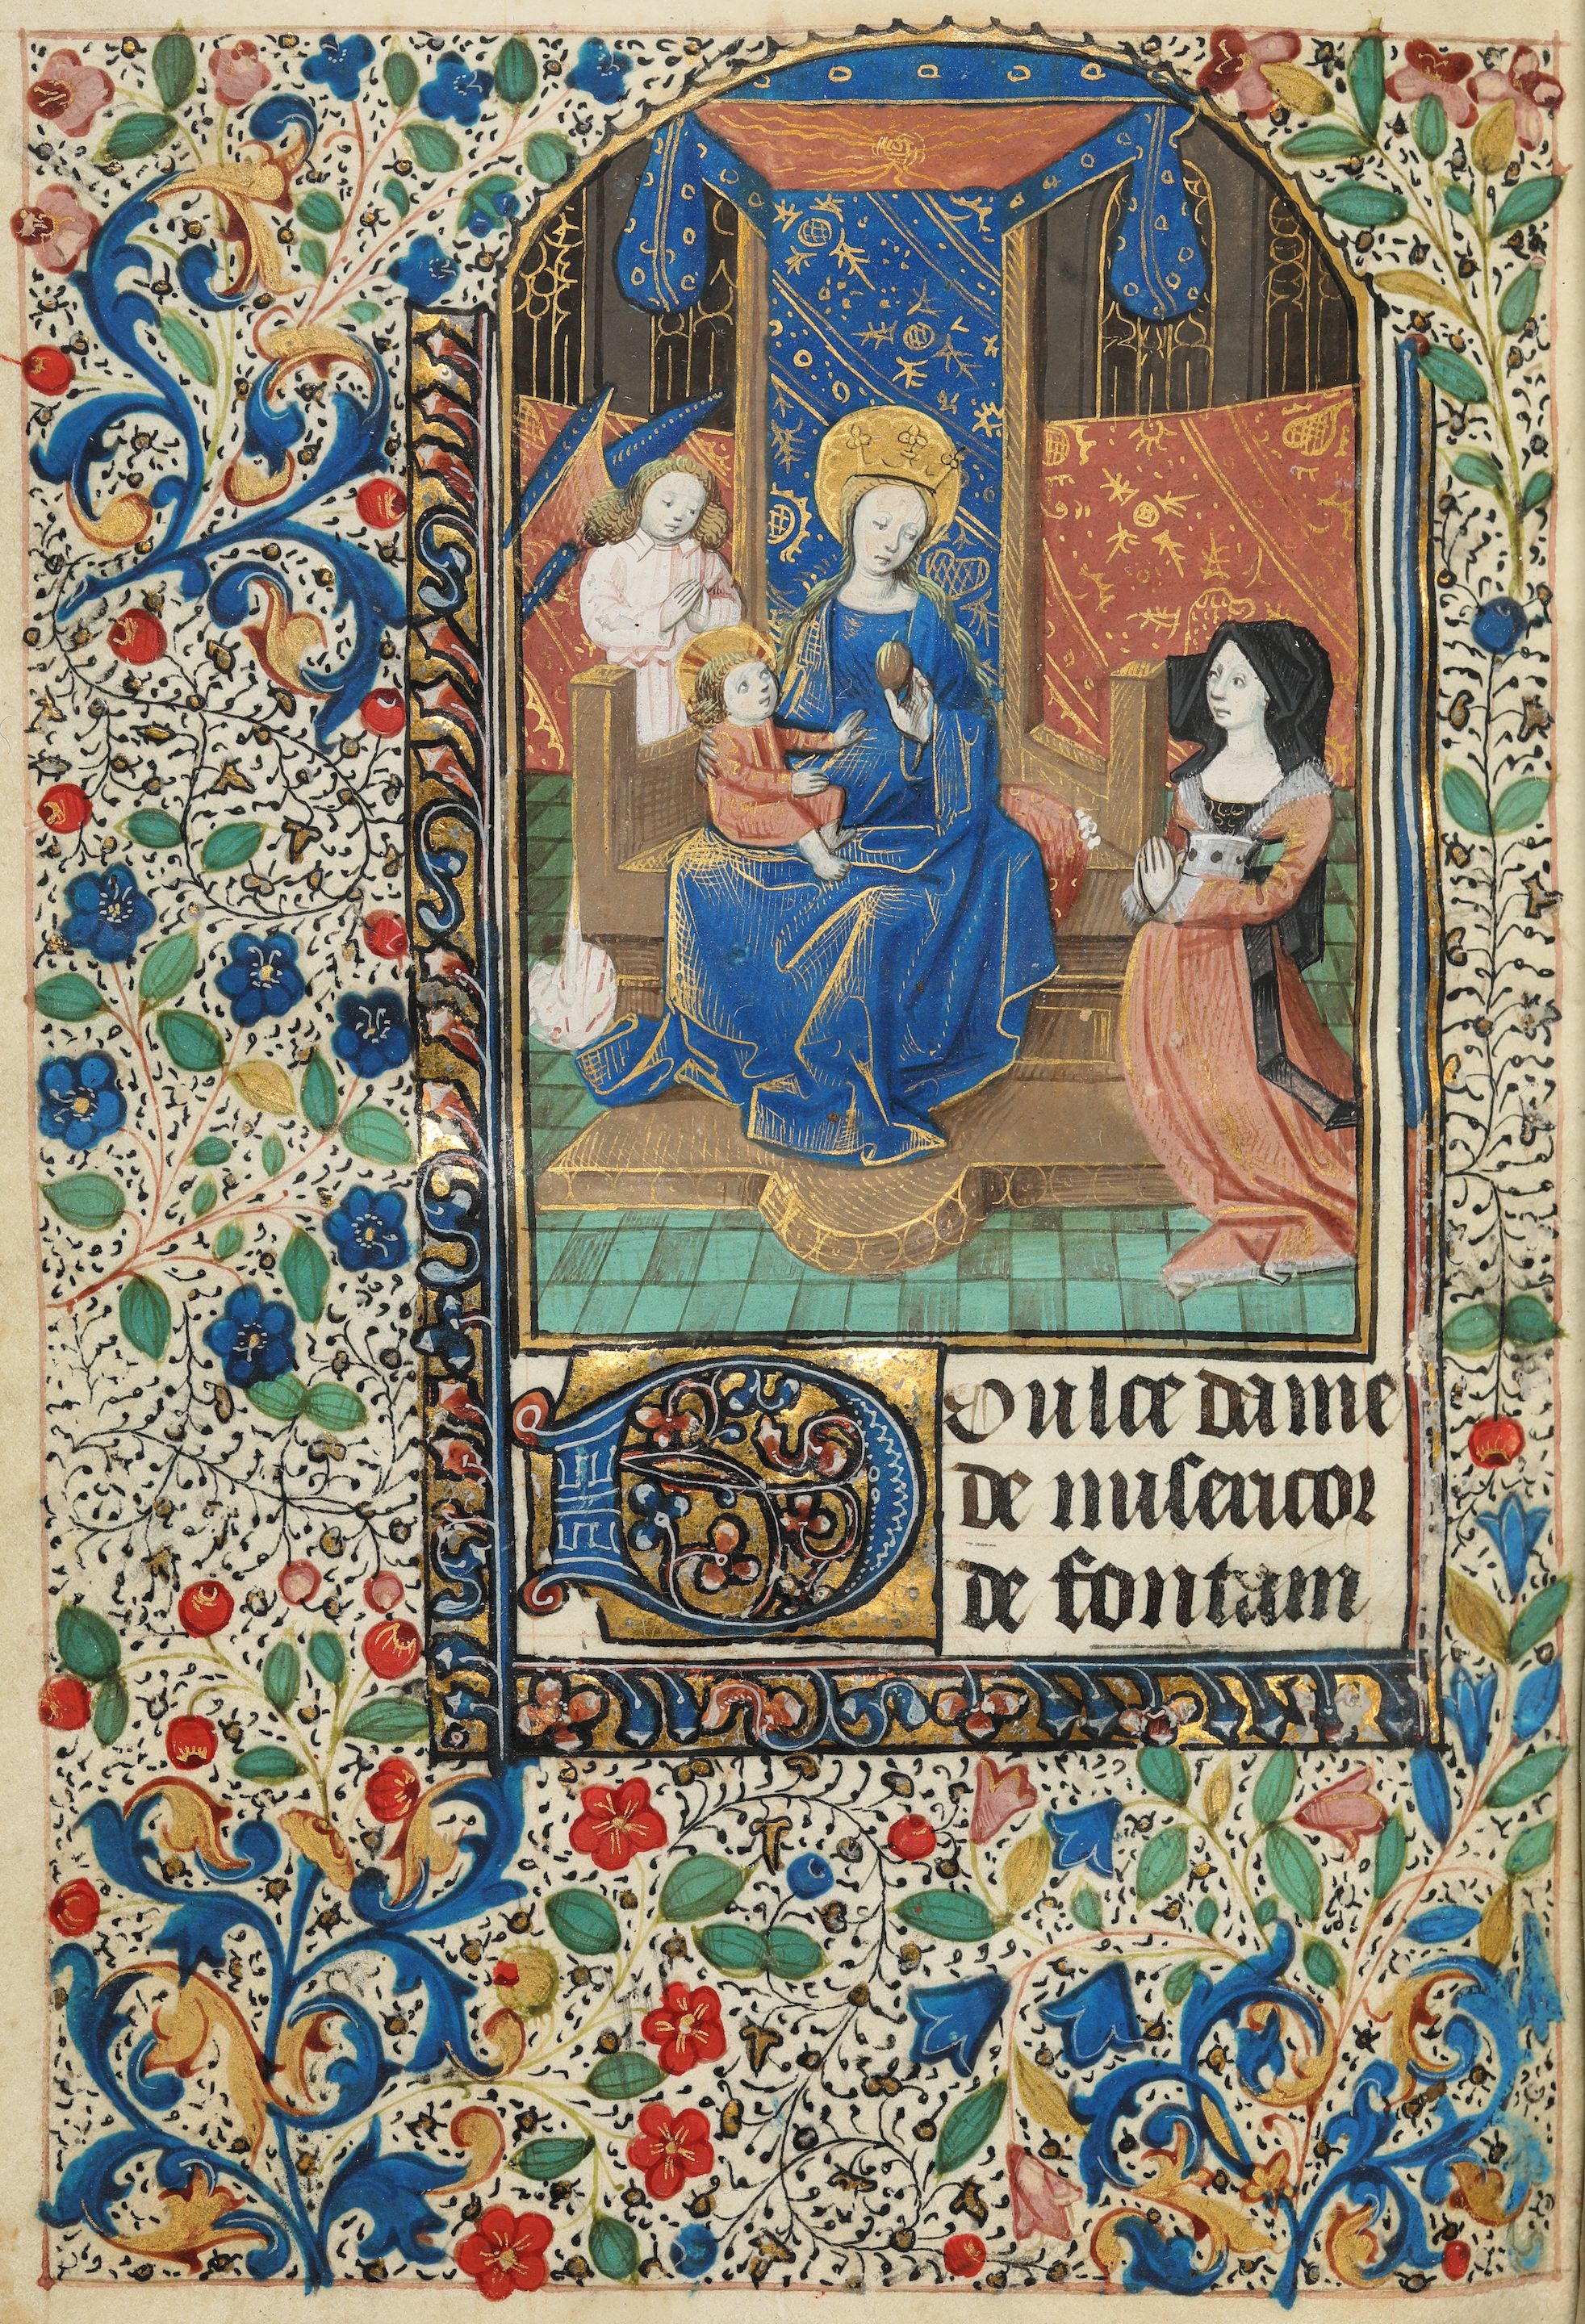 Doulce dame
de misericor
de fontain